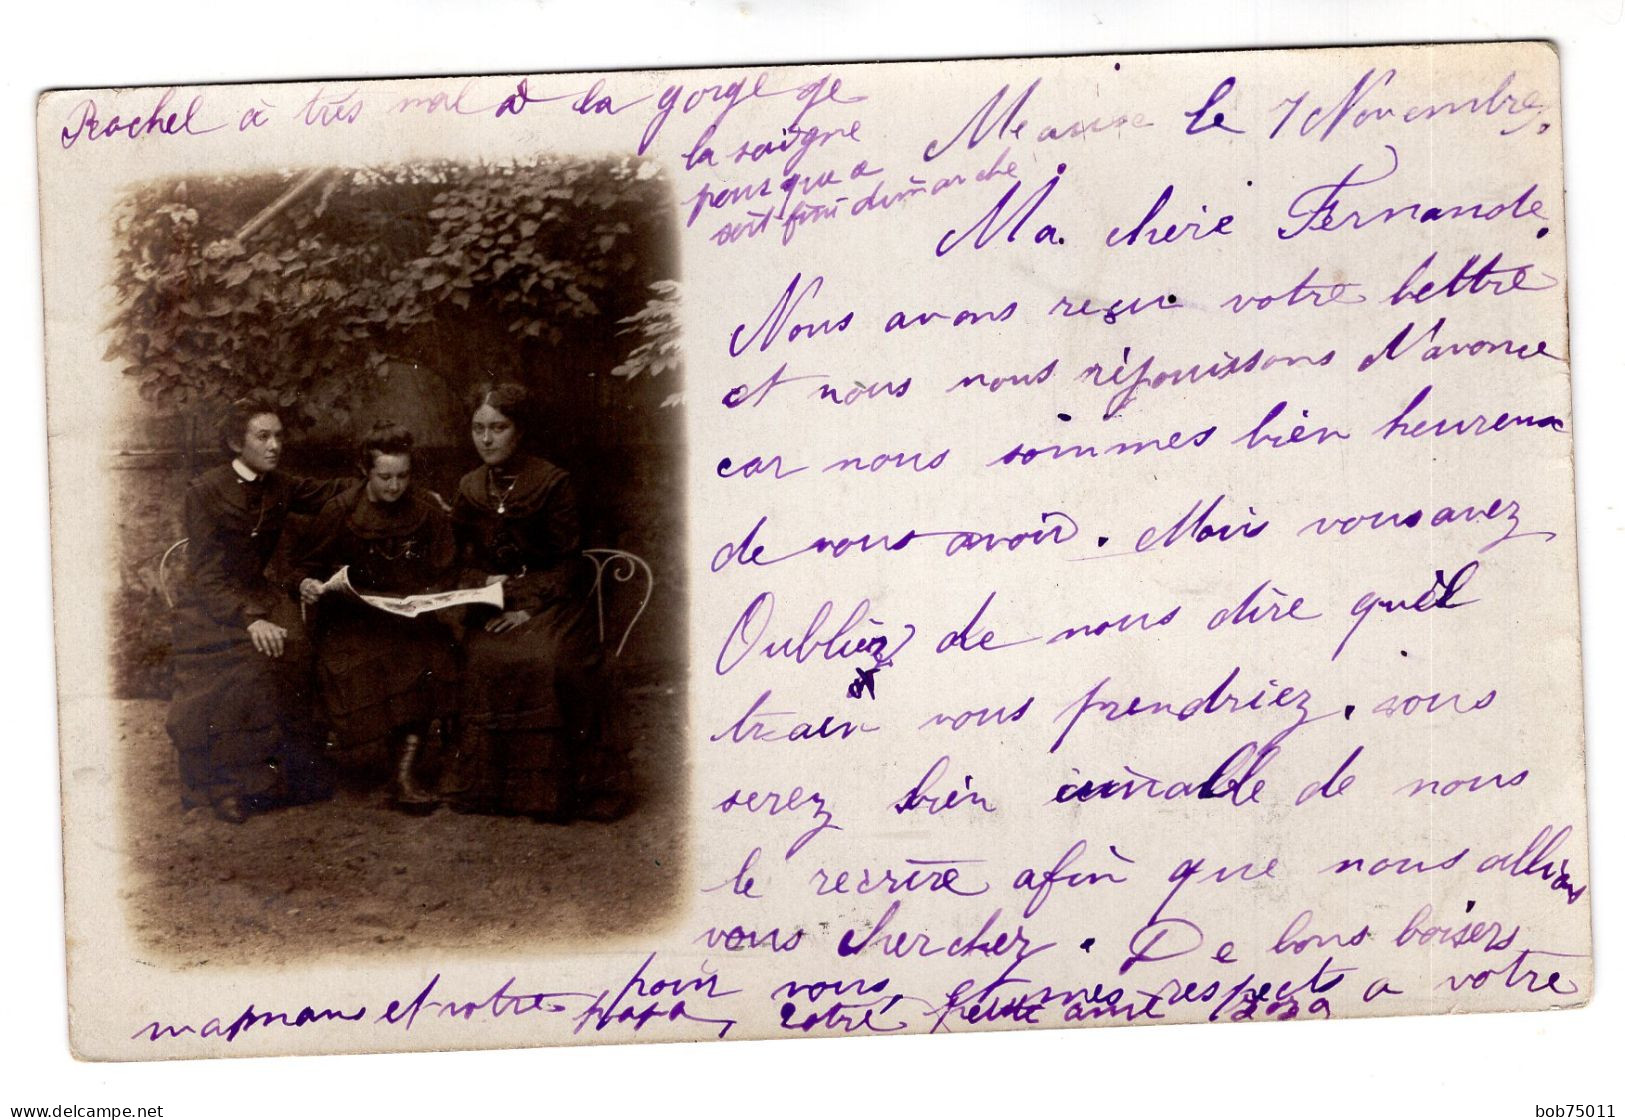 Rachel à très mal à la gorge je
la soigne
pour que a
soit fini dimanche
le 7 Novembre.
Ma chère Fernande.
Nous avons reçu votre lettre
et nous nous réjouissons d'avance
car nous sommes bien heureux
de vous avoir. Mais vous avez
Oubliez de nous dire quèl
train vous prendriez. vous
serez bien aimable de nous
le recrire afin que nous allions
vous cherchez. De bons baisers
pour vous, et mes respects a votre
maman et votre papa, votre petite amie
bob75011